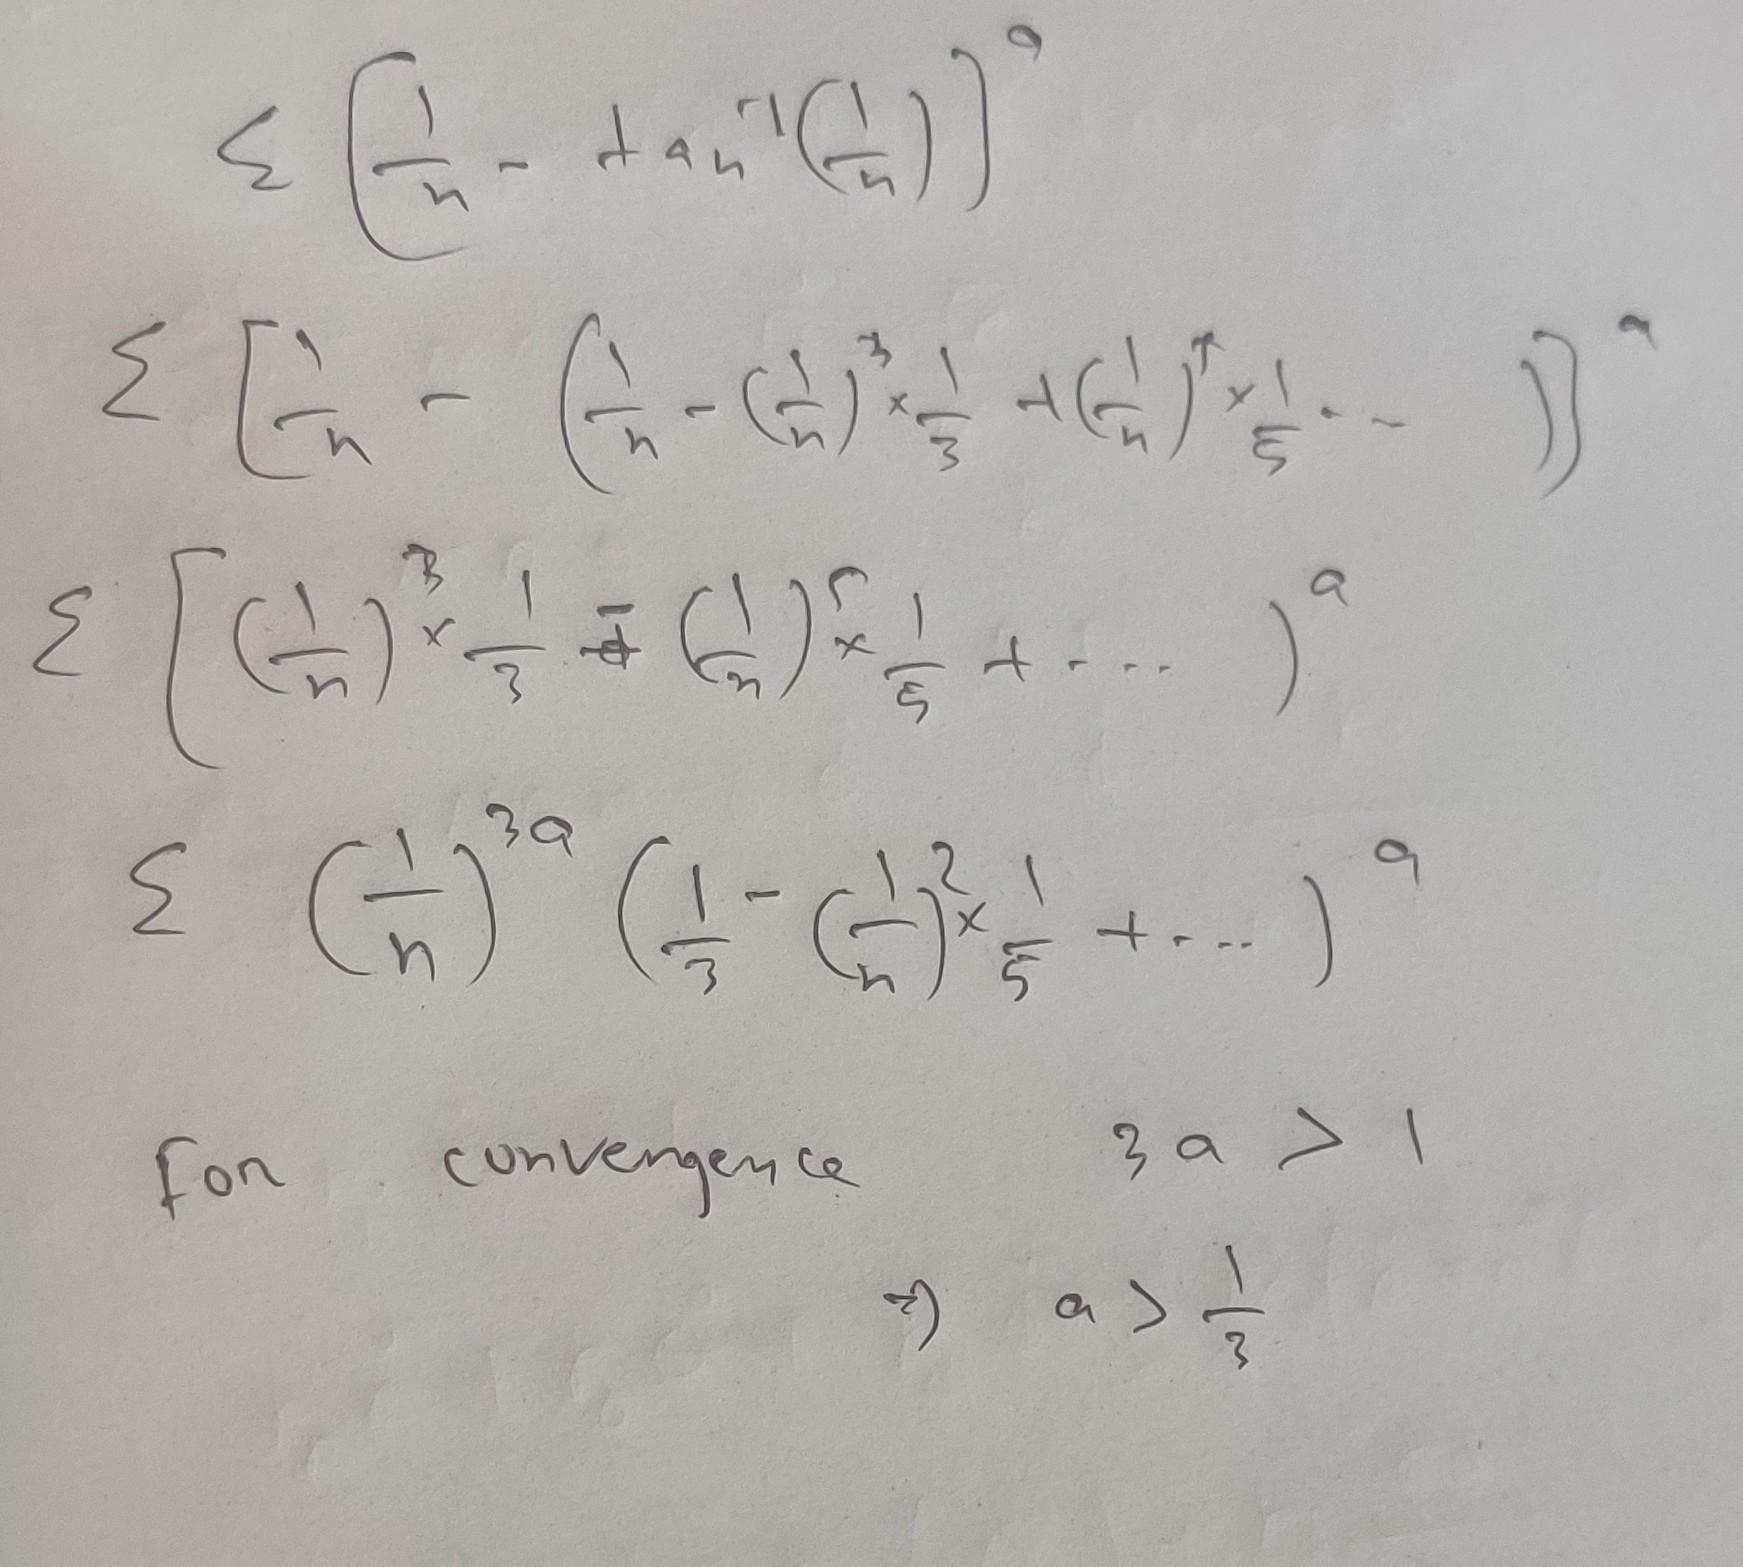 Σ [1/n - tan⁻¹(1/n)]^a
Σ [1/n - (1/n - (1/n)³ × 1/3 + (1/n)⁵ × 1/5 ... )]^a
Σ [(1/n)³ × 1/3 - (1/n)⁵ × 1/5 + .... )^a
Σ (1/n)^3a (1/3 - (1/n)² × 1/5 + .... )^a
For convergence 3a > 1
⇒ a > 1/3